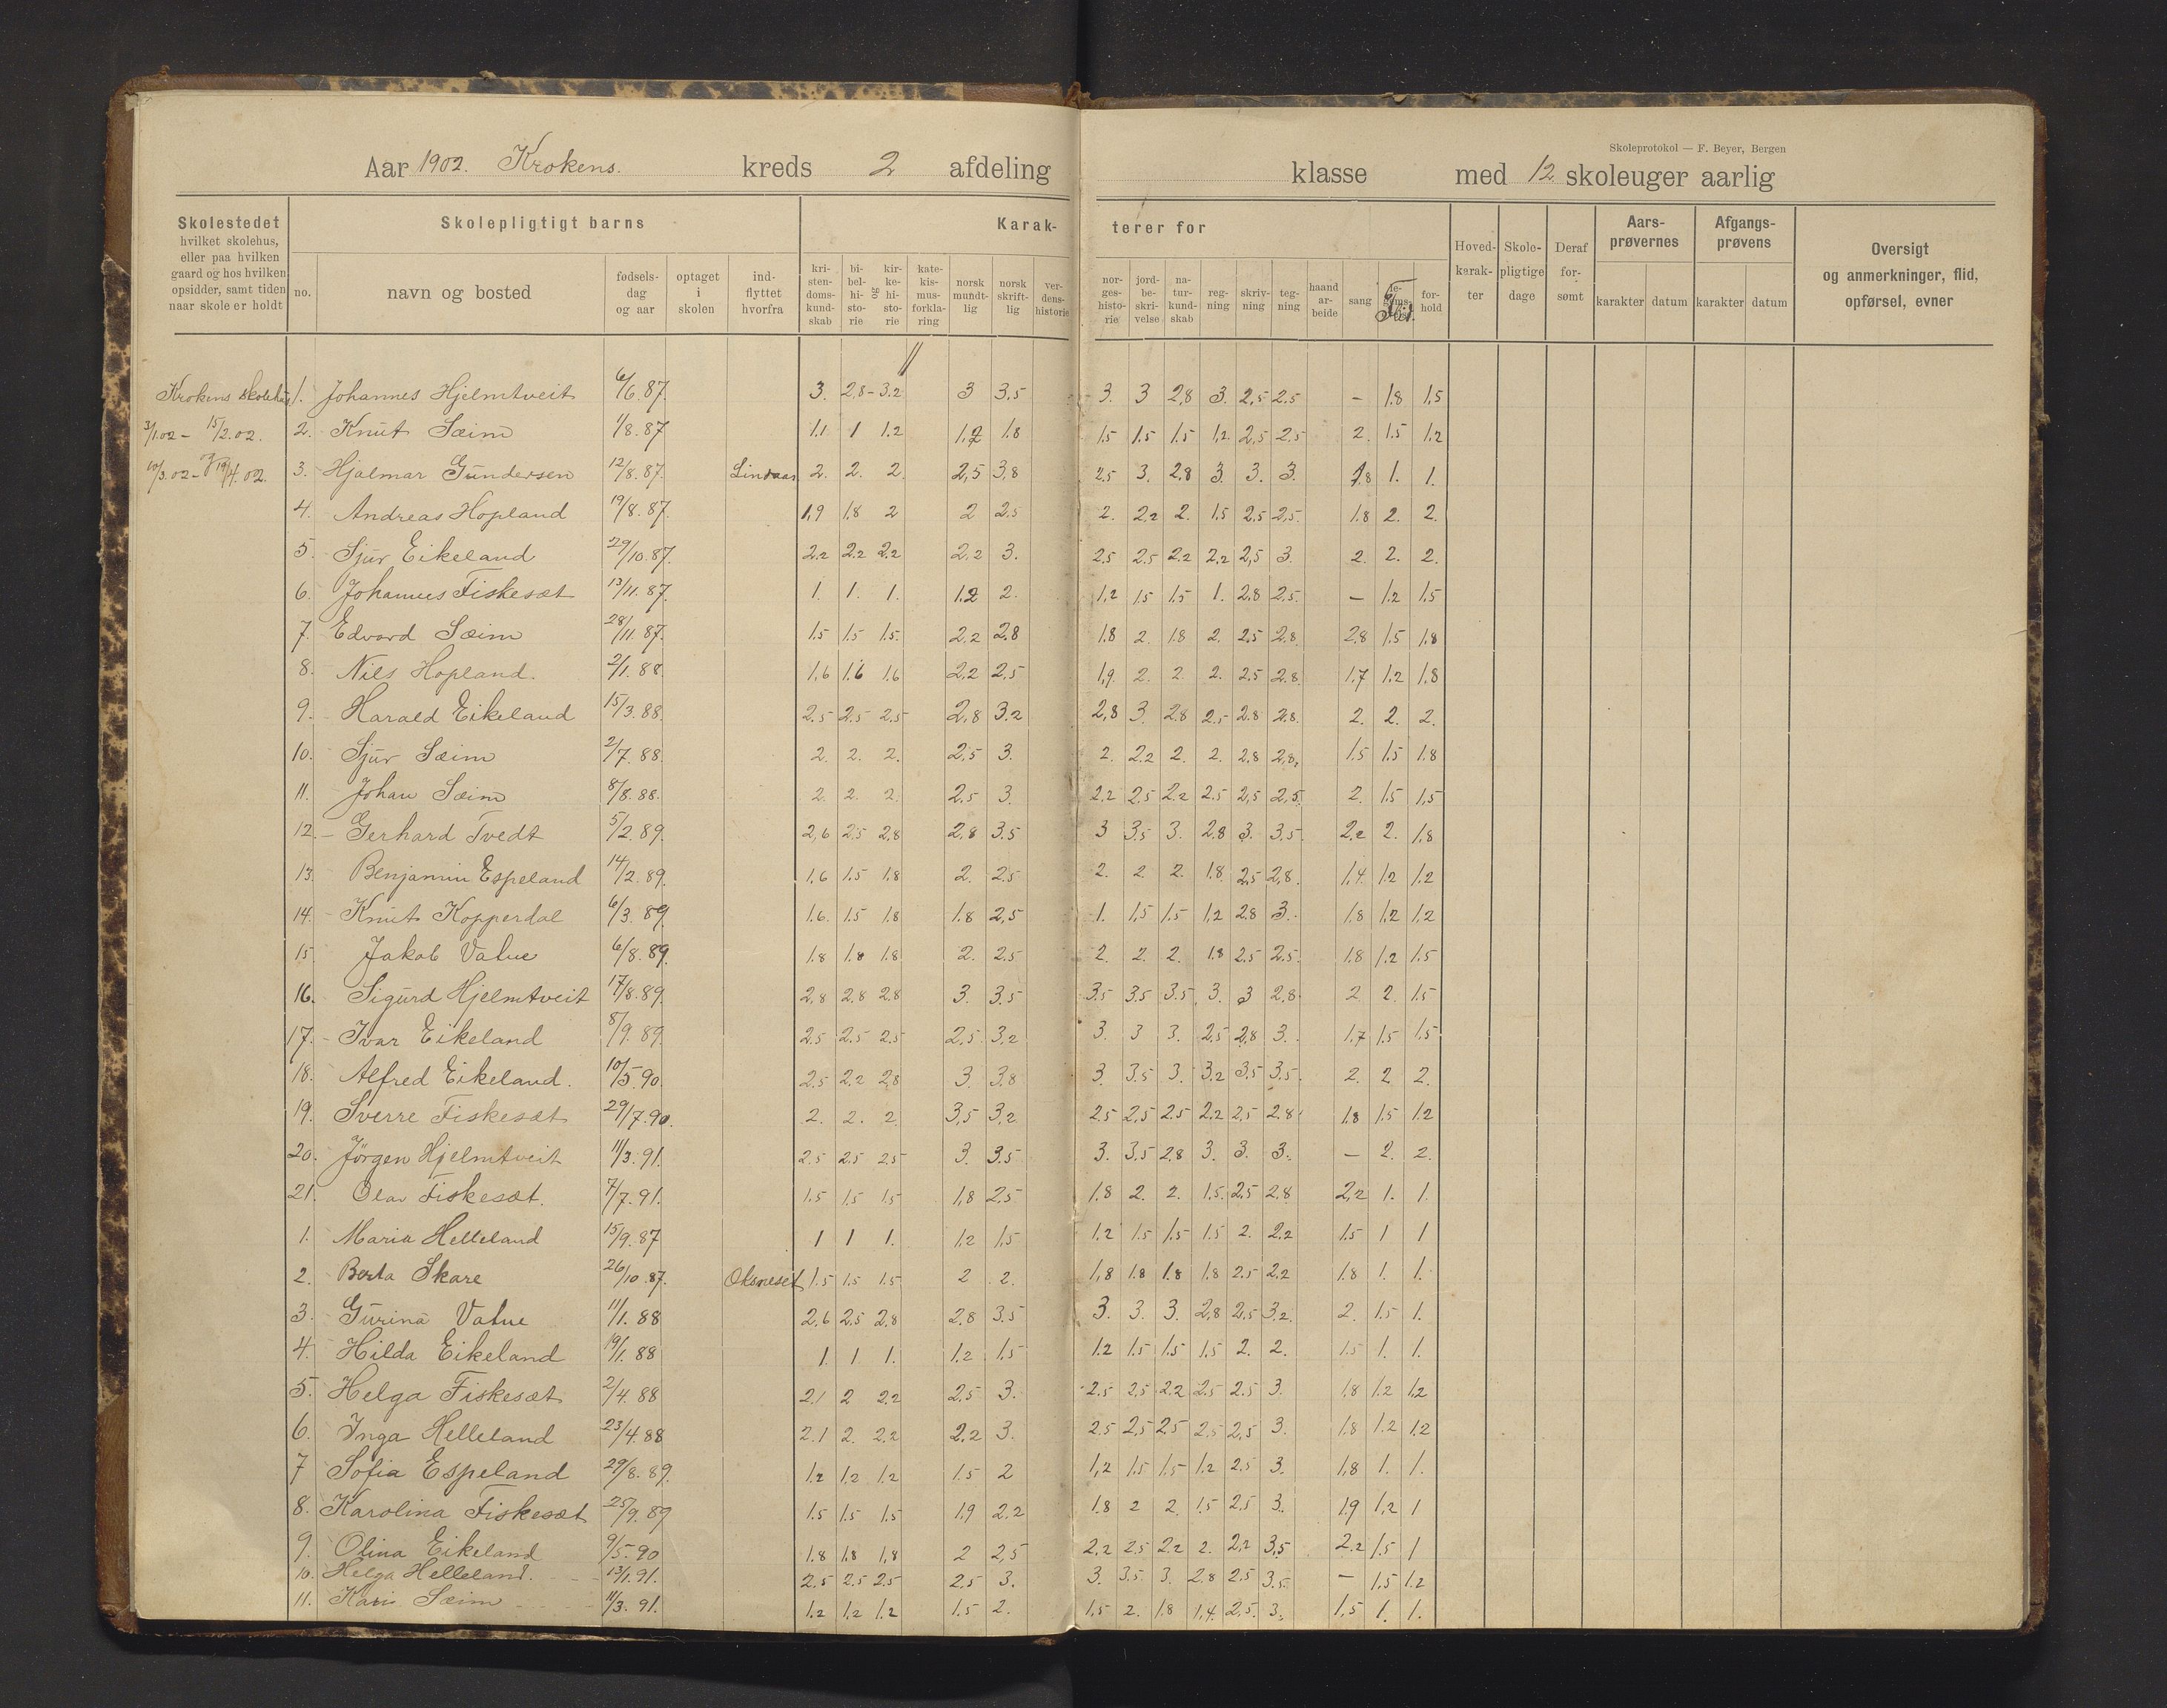 Skoleprotokol — F. Beyer, Bergen
Aar 1902. Krokens. kreds 2 afdeling klasse med 12 skoleuger aarlig
Skolestedet hvilket skolehus, eller paa hvilken gaard og hos hvilken opsidder, samt tiden naar skole er holdt
Skolepligtigt barns
no. navn og bosted fødsels-dag og aar optaget i skolen ind-flyttet hvorfra
Karak- terer for
kri-sten-doms-kund-skab bi-bel-hi-sto-rie og kir-ke-hi-sto-rie kate-kis-mus-forkla-ring norsk mundt-lig norsk skrift-lig ver-dens-historie nor-ges-histo-rie jord-be-skri-velse na-tur-kund-skab reg-ning skriv-ning teg-ning haand ar-beide sang Flid. for-hold
Hoved-karak-ter Skole-pligtige dage Deraf for-sømt
Aars-prøvernes karakter datum
Afgangs-prøvens karakter datum
Oversigt og anmerkninger, flid, opførsel, evner
Krokens skolehus 1. Johannes Hjelmtveit 6/6.87. 3. 2,8 - 3.2 3 3,5 3. 3 2,8 3. 2,5 2.5 – 1.8 1,5
3/1.02 - 15/2.02. 2. Knut Sæim 1/8.87 1.1 1 1.2 1,2 1.8 1.5 1.5 1.5 1.2 2,5 2.5 2. 1.5 1.2
10/3.02 - 19/4.02. 3. Hjalmar Gundersen 12/8.87. Lindaas 2. 2. 2. 2,5 3,8 2.5 3. 2,8 3. 3. 3. 1.8 1. 1.
4. Andreas Hopland 19/8.87. 1,9 1.8 2 2 2.5 2. 2,2 2. 1.5 2.5 2,5. 1.8 2. 2.
5. Sjur Eikeland 29/10.87. 2.2 2.2 2.2 2.2 3. 2.5 2.5 2.2 2,2 2,5 3. 2. 2. 2.
6. Johannes Fiskesæt 13/11.87. 1. 1. 1. 1.2 2. 1,2 1.5 1.5 1. 2.8 2.5. – 1.2 1.5
7. Edvard Sæim 28/11.87. 1.5 1.5 1.5. 2.2 2.8 1.8 2. 1.8 2. 2.5 2.8 2.8 1.5 1.8
8. Nils Hopland. 2/1.88. 1,6 1.6 1.6 2,2 2,5 1,9. 2. 2 2. 2.5 2.8. 1.7 1.2 1,8
9. Harald Eikeland 15/3.88. 2.5 2.5 2.5 2,8 3.2 2,8 3. 2.8 2.5 2.8 2.8. 2. 2. 2.
10. Sjur Sæim 2/7.88. 2. 2. 2. 2,5 3. 2. 2.2 2. 2. 2.8 2,8. 1.5 1.5 1.8
11. Johan Sæim 8/8.88. 2. 2. 2. 2.5 3. 2.2 2.5 2.2 2.5 2,5 2,5. 2. 1.5 1,5
12. – Gerhard Tvedt 5/2.89. 2,6 2.5 2,8 2,8 3.5 3 3.5 3. 2.8 3. 3.5. 2.2 2. 1.8
13. Benjamin Espeland 14/2.89. 1.6 1.5 1.8 2. 2.5 2. 2. 2. 1.8. 2.5 2,8. 1,4. 1.2 1.2
14. Knut Kopperdal 6/3.89. 1.6. 1.5 1.8 1.8 2,5 1. 1,5 1.5 1,2 2.8 3. 1.8 1,2 1,2
15. Jakob Vatne 6/8.89. 1.8 1.8 1.8 2. 2.5 2. 2. 2. 1.8 2.5 2.5. 1.8 1.2 1.5
16. Sigurd Hjelmtveit 17/8.89. 2,8 2,8 2.8 3. 3.5 3.5 3.5 3.5 3. 3 2,8 2 2. 1.5
17. Ivar Eikeland 8/9.89. 2.5 2.5 2.5 2,5 3,2 3. 3 3. 2.5 2,8 3. 1.7 1.5 1.5
18. Alfred Eikeland. 10/5.90. 2.5 2.2 2,8 3. 3.8 3. 3.5 3. 3.2 3.5 3.5. 2. 2 2.
19. Sverre Fiskesæt 29/7.90. 2. 2. 2 3,5 3,2 2.5 2,5 2.5 2.2 2.5 2.8 1.8 1.5 1.2
20. Jörgen Hjelmtveit 11/3.91. 2.5 2.5 2.5 3. 3.5 3. 3.5 2.8 3. 3. 3. – 2. 2.
21. Olav Fiskesæt. 7/7.91. 1.5 1.5 1.5 1,8 2.5 1.8 2. 2. 1.5. 2.5 2.8 2,2 1. 1.
1. Maria Helleland 15/9.87 1 1 1. 1.2 1.5 1.2 1.5 1.5 1.5 2. 2.2 1.5 1 1
2. Berta Skare 26/10.87. 1.5 1.5 1.5 2 2. 1,8 1.8 1.8 1.8 2.5 2.2 1.8 1. 1.
3. Gurina Vatne 11/1.88 2.6 2.5 2,8 2.8 3.5 3. 3. 3. 2,8 2,5 3,2. 2. 1.5 1.
4. Hilda Eikeland 19/1.88 1. 1. 1. 1.2 1.5 1.2 1.5 1.5 1.5 2. 2. 1.5 1. 1.
5. Helga Fiskesæt 2/4.88 2.1 2 2.2 2.5 3. 2.5 2,5 2.2 2.5 2.5 3. 1,8 1.2 1.2
6. Inga Helleland 23/4.88 2.1 2. 2.2 2.2 3. 2.5 2,5 2.5 2.5 2,5 3. 1.8 1.2 1.2
7 Sofia Espeland 29/8.89. 1.2 1.2 1.2 1.5 2 1,2 1.5 1.5 1.2 2.5 3. 1,8 1. 1.
8. Karolina Fiskesæt 25/9.89 1.5 1.5 1.5 1.9 2.2 1.8 2 2. 1.5 2.5 3. 1.9 1,2 1
9. Olina Eikeland 9/5.90 1.8 1.8 1,8 2 2,5 2.2 2.5 2.2 2. 2,2 3,5 2.2 1.5 1
10. Helga Helleland. 13/1.91. 2.5 2.5 2.5 2.5 3. 3. 3.5. 3. 2.8 2.5 3.5. – 1.5 1.2
11. Kari Sæim 11/3.91. 1.2 1.2 1.2 1.5 2. 1,5 2. 1.8 1,4. 2.5. 3. 1,5 1. 1.